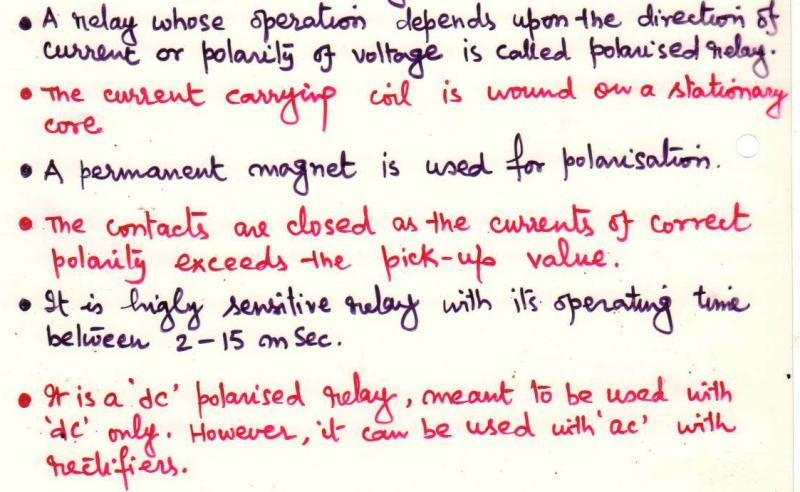 • A relay whose operation depends upon the direction of
current or polarity of voltage is called polarised relay.
• The current carrying coil is wound on a stationary
core
• A permanent magnet is used for polarisation.
• The contacts are closed as the currents of correct
polarity exceeds the pick-up value.
• It is higly sensitive relay with its operating time
between 2-15 m Sec.
• It is a 'dc' polarised relay, meant to be used with
'dc' only. However, it can be used with 'ac' with
rectifiers.